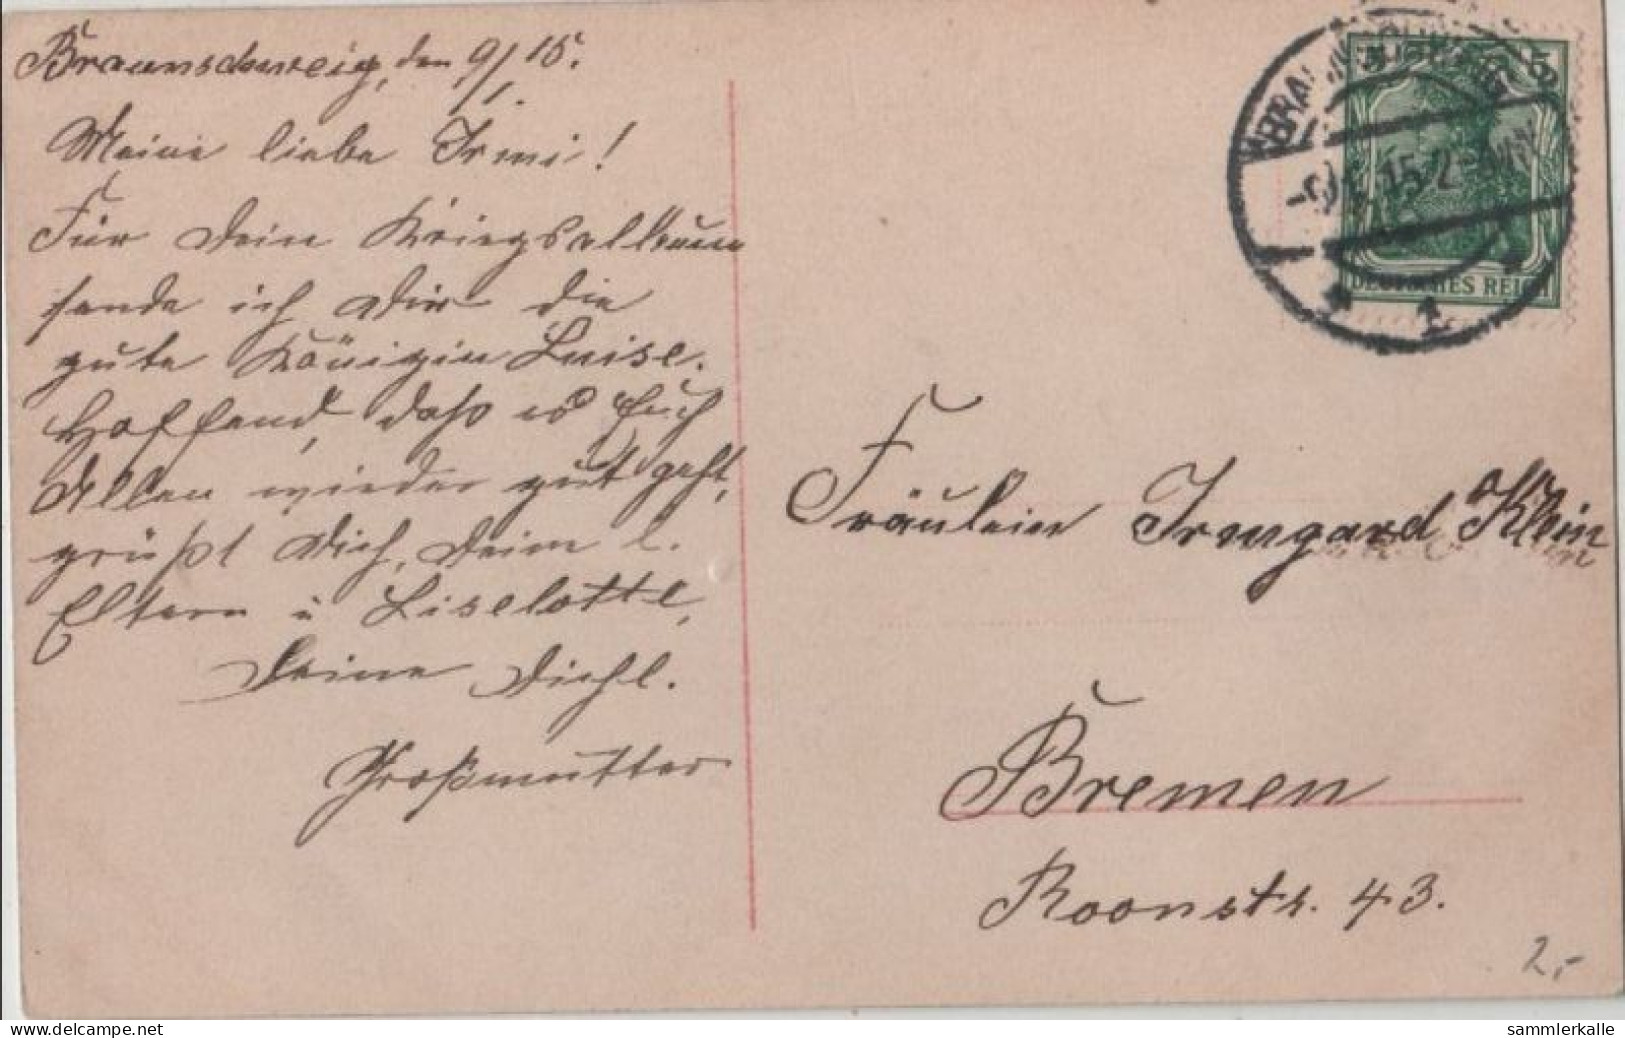 Braunschweig, den 9/1. 15.
Meine liebe Irmi!
Für Dein Kriegsalbum
sende ich Dir die
gute Königin Luise.
Hoffend, daß es Euch
Allen wieder gut geht,
grüßt Dich, Deine l.
Eltern u Liselotte,
Deine Dichl.
Großmutter
BRAUNSCHWEIG
15. 2-3
1
5
5
DEUTSCHES REICH
Fräulein Irmgard Klein
Bremen
Roonstr. 43.
2,-
www.delcampe.net
sammlerkalle